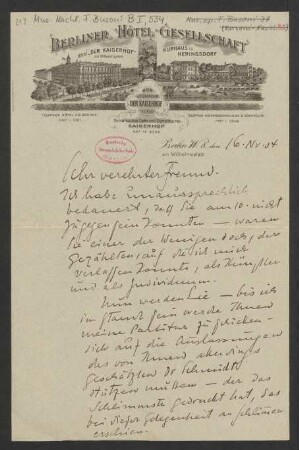 Mus. Nachl. F. Busoni B I, 534
BERLINER HÔTEL-GESELLSCHAFT
HOTEL "DER KAISERHOF"
KURHAUS in HERINGSDORF
"DER KAISERHOF"
KAISERHOF
Berlin W. 8. den 16. Nv. 04
am Wilhelmplatz
Sehr verehrter Freund.
Ich habe unaussprechlich
bedauert, daß Sie am 10. nicht
zugegen sein konnten – waren
Sie einer der Wenigen doch, der
Gezählten, auf die ich mich
verlassen konnte, als Künstler
und als Individuum.
Nun werden Sie – bis ich
im Stande sein werde Ihnen
meine Partitur zu schicken –
sich auf die Auslassungen
des von Ihnen allerdings
geschätzten Dr Schmidt
stützen müssen – der das
Schlimmste gedruckt hat, das
bei dieser Gelegenheit an Schlimmem
erschien.